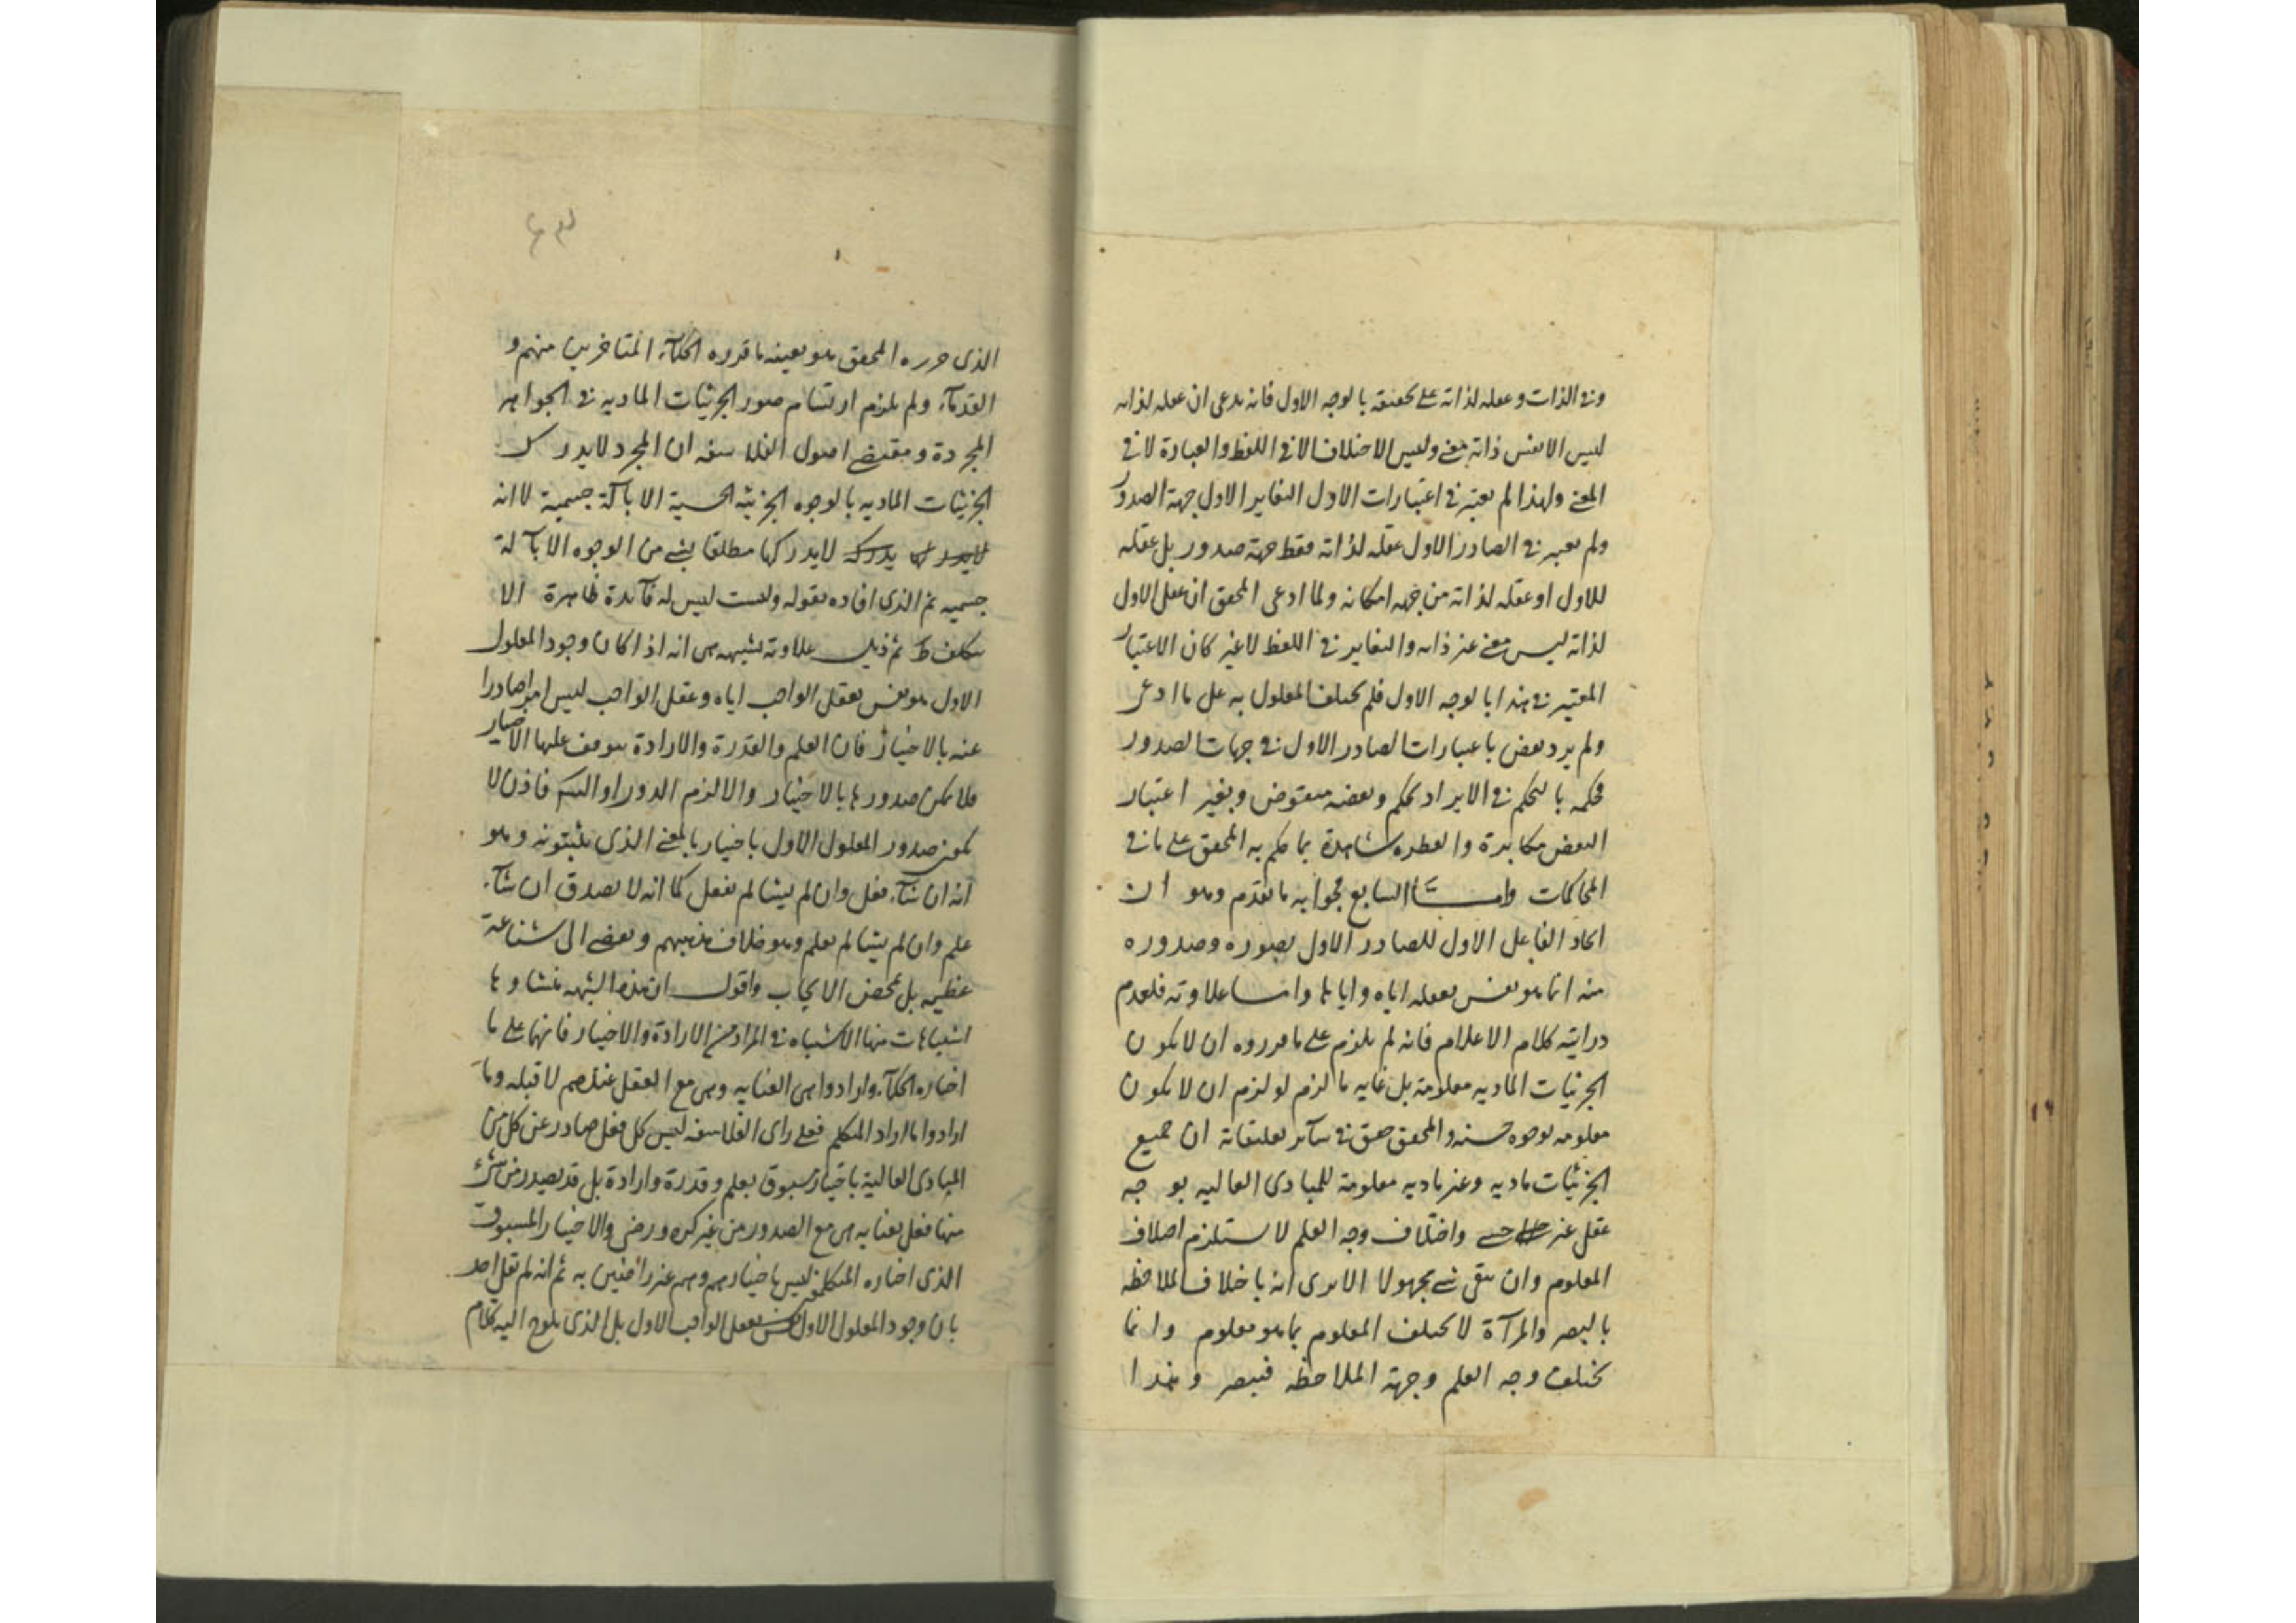 وفى الذات وعقله لذاته على تحقيقه بالوجه الاول فانه يدعى ان عقله لذاته
ليس الا نفس ذاته بمعنى وليس الاختلاف الا فى اللفظ والعبارة لا فى
المعنى ولهذا لم يعتبر فى اعتبارات الاول التغاير الاول جهة الصدور
ولم يعتبر فى الصادر الاول عقله لذاته فقط جهة صدور بل عقله
للاول او عقله لذاته من جهة امكانه ولما ادعى المحقق ان عقل الاول
لذاته ليس معنى غير ذاته والتغاير فى اللفظ لا غير كان الاعتبار
المعتبر فى هذا بالوجه الاول فلم يختلف المعلول به على ما ادعى
ولم يرد بعض باعتبارات الصادر الاول فى جهات الصدور
فحكمه بالتحكم فى الايراد تحكم وبعضه منقوض وبغير اعتبار
البعض مكابرة والفطرة شاهدة بما حكم به المحقق على ما فى
المحاكمات واما السابع فجوابه ما تقدم وهو ان
اتحاد الفاعل الاول للصادر الاول بصوره وصدوره
منه انما هو نفس تعقله اياه واياها واما علاوته فلعدم
درايته كلام الاعلام فانه لم يلزم على ما قرروه ان لا يكون
الجزئيات المادية معلومة بل غاية ما لزم لو لزم ان لا يكون
معلومة بوجوه حسية والمحقق حقق فى سائر تعليقاته ان جميع
الجزئيات مادية وغير مادية معلومة للمبادى العالية بوجه
عقلى غير حسى واختلاف وجه العلم لا يستلزم اختلاف
المعلوم وان بقى شئ مجهولا الا يرى انه باختلاف الملاحظة
بالبصر والمرآة لا يختلف المعلوم بما هو معلوم وانما
يختلف وجه العلم وجهة الملاحظة فتبصر وهذا
الذى حرره المحقق هو بعينه ما قرره الحكماء المتاخرين منهم و
القدماء ولم يلزم ارتسام صور الجزئيات المادية فى الجواهر
المجردة ومقتضى اصول الفلاسفة ان المجرد لا يدرك
الجزئيات المادية بالوجوه الجزئية الحسية الا بآلة جسمية لا انه
لا يدركها مطلقا بشئ من الوجوه الا بآلة
جسمية ثم الذى افاده بقوله وليست ليس له فائدة ظاهرة الا
ثم ذيل علاوته بشبهة هى انه اذا كان وجود المعلول
الاول هو نفس تعقل الواجب اياه وعقل الواجب ليس امرا صادرا
عنه بالاختيار فان العلم والقدرة والارادة يتوقف عليها الاختيار
فلا يمكن صدورها بالاختيار والا لزم الدور او التسلسل فاذن لا
يكون صدور المعلول الاول باختيار بالمعنى الذى يثبتونه وهو
انه ان شاء فعل وان لم يشا لم يفعل كما انه لا يصدق ان شاء
علم وان لم يشا لم يعلم وهو خلاف مذهبهم ويفضى الى شناعة
عظيمة بل محض الايجاب واقول ان هذه الشبهة منشاوها
اشتباهات منها الاشتباه فى المراد من الارادة والاختيار فانهما على ما
اختاره الحكماء وارادوا هى العناية وهى مع العقل عندهم لا قبله وما
ارادوا ما اراد المتكلم فعلى راى الفلاسفة ليس كل فعل صادر عن كل من
المبادى العالية باختيار مسبوق بعلم وقدرة وارادة بل قد يصدر من شئ
منها فعل بعناية هى مع الصدور من غير كره ورضى والاختيار المسبوق
الذى اختاره المتكلم ليس باختيارهم وهم غير راضين به ثم انه لم يقل احد
بان وجود المعلول الاول نفس تعقل الواجب الاول بل الذى يلوح اليه كلام